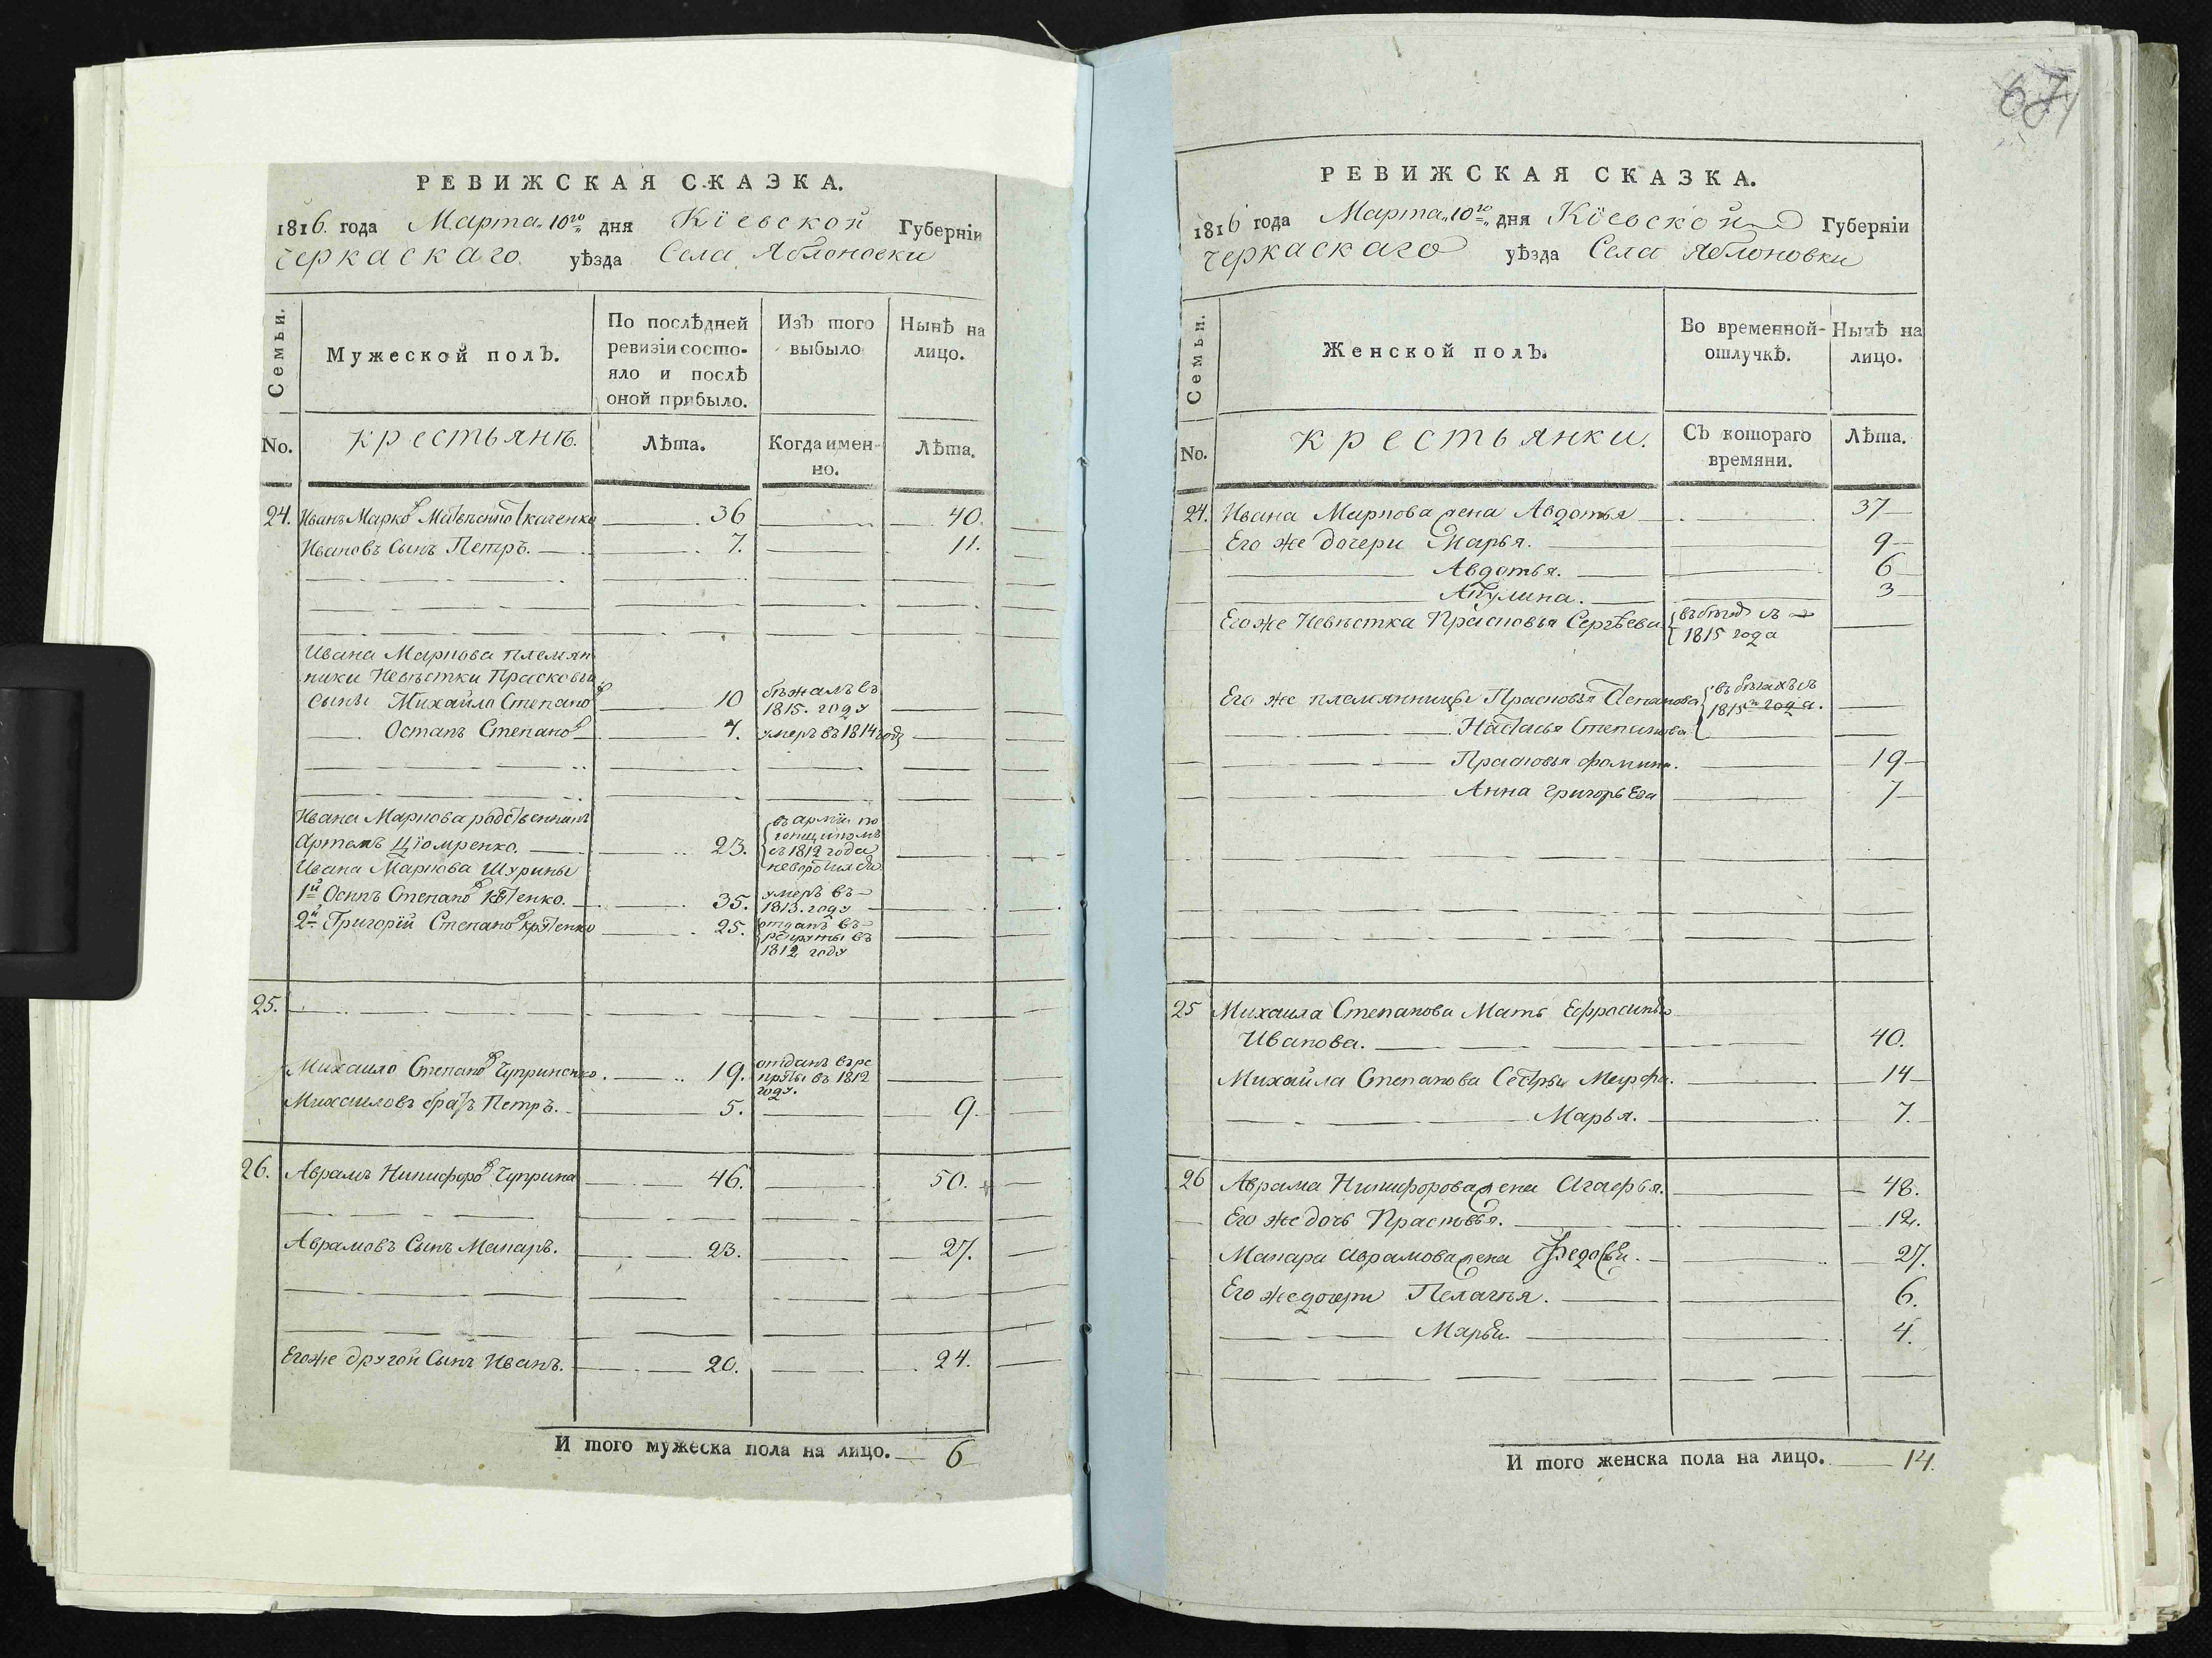 РЕВИЖСКАЯ СКАЗКА.
1816. года Марта „10го„ дня Кіевской Губерніи
Черкаскаго уѣзда Села Яблоновки
Семьи.
Мужеской полъ.
По послѣдней ревизіи состояло и послѣ оной прибыло.
Изъ того выбыло
Нынѣ на лицо.
No.
крестьянѣ.
Лѣта.
Когда именно.
Лѣта.
24. Иванъ Марковъ Ткаченко 36 40.
Ивановъ Сынъ Петръ. 7. 11.
Ивана Маркова племян
ники Невѣстки Прасковьи
сыны Михайло Степановъ 10 бѣжалъ въ 1815. году
Остапъ Степановъ 7. умеръ въ 1814 году
Ивана Маркова родственникъ
Артемъ Цюмренко. 23. въ арміи погонщикомъ съ 1812 года
Ивана Маркова Шурины
1й Осипъ Степановъ 35. умеръ въ 1813. году
2й Григорій Степановъ 25. отданъ въ рекруты въ 1812 году
25.
Михаило Степановъ Чуприненко. 19. отданъ въ рекруты въ 1812 году.
Михаиловъ братъ Петръ. 5. 9.
26. Аврамъ Никифоровъ Чуприна 46. 50.
Аврамовъ Сынъ Макаръ. 23. 27.
Егоже другой Сынъ Иванъ. 20. 24.
И того мужеска пола на лицо. 6
РЕВИЖСКАЯ СКАЗКА.
1816 года Марта „10го„ дня Кіевской Губерніи
Черкаскаго уѣзда Села Яблоновки
Семьи.
Женской полъ.
Во временной отлучкѣ.
Нынѣ на лицо.
No.
крестьянки.
Съ котораго времяни.
Лѣта.
24. Ивана Маркова жена Авдотья 37
Его же дочери Марья. 9
Авдотья. 6
Акулина. 3
Егоже Невѣстка Прасковья Сергѣева въ бѣгахъ съ 1815 года
Его же племянницы Прасковья Степанова въ бѣгахъ съ 1815го года.
Настасья Степанова
Прасковья Фомина. 19
Анна Григорьева 7
25 Михаила Степанова Мать Ефросинья
Иванова. 40.
Михайла Степанова Сестры Марфа. 14
Марья. 7.
26 Аврама Никифорова жена Агафья. 48.
Его же дочь Прасковья. 12.
Макара Аврамова жена Федосья. 27.
Его же дочери Пелагья. 6.
Марья. 4.
И того женска пола на лицо. 14.